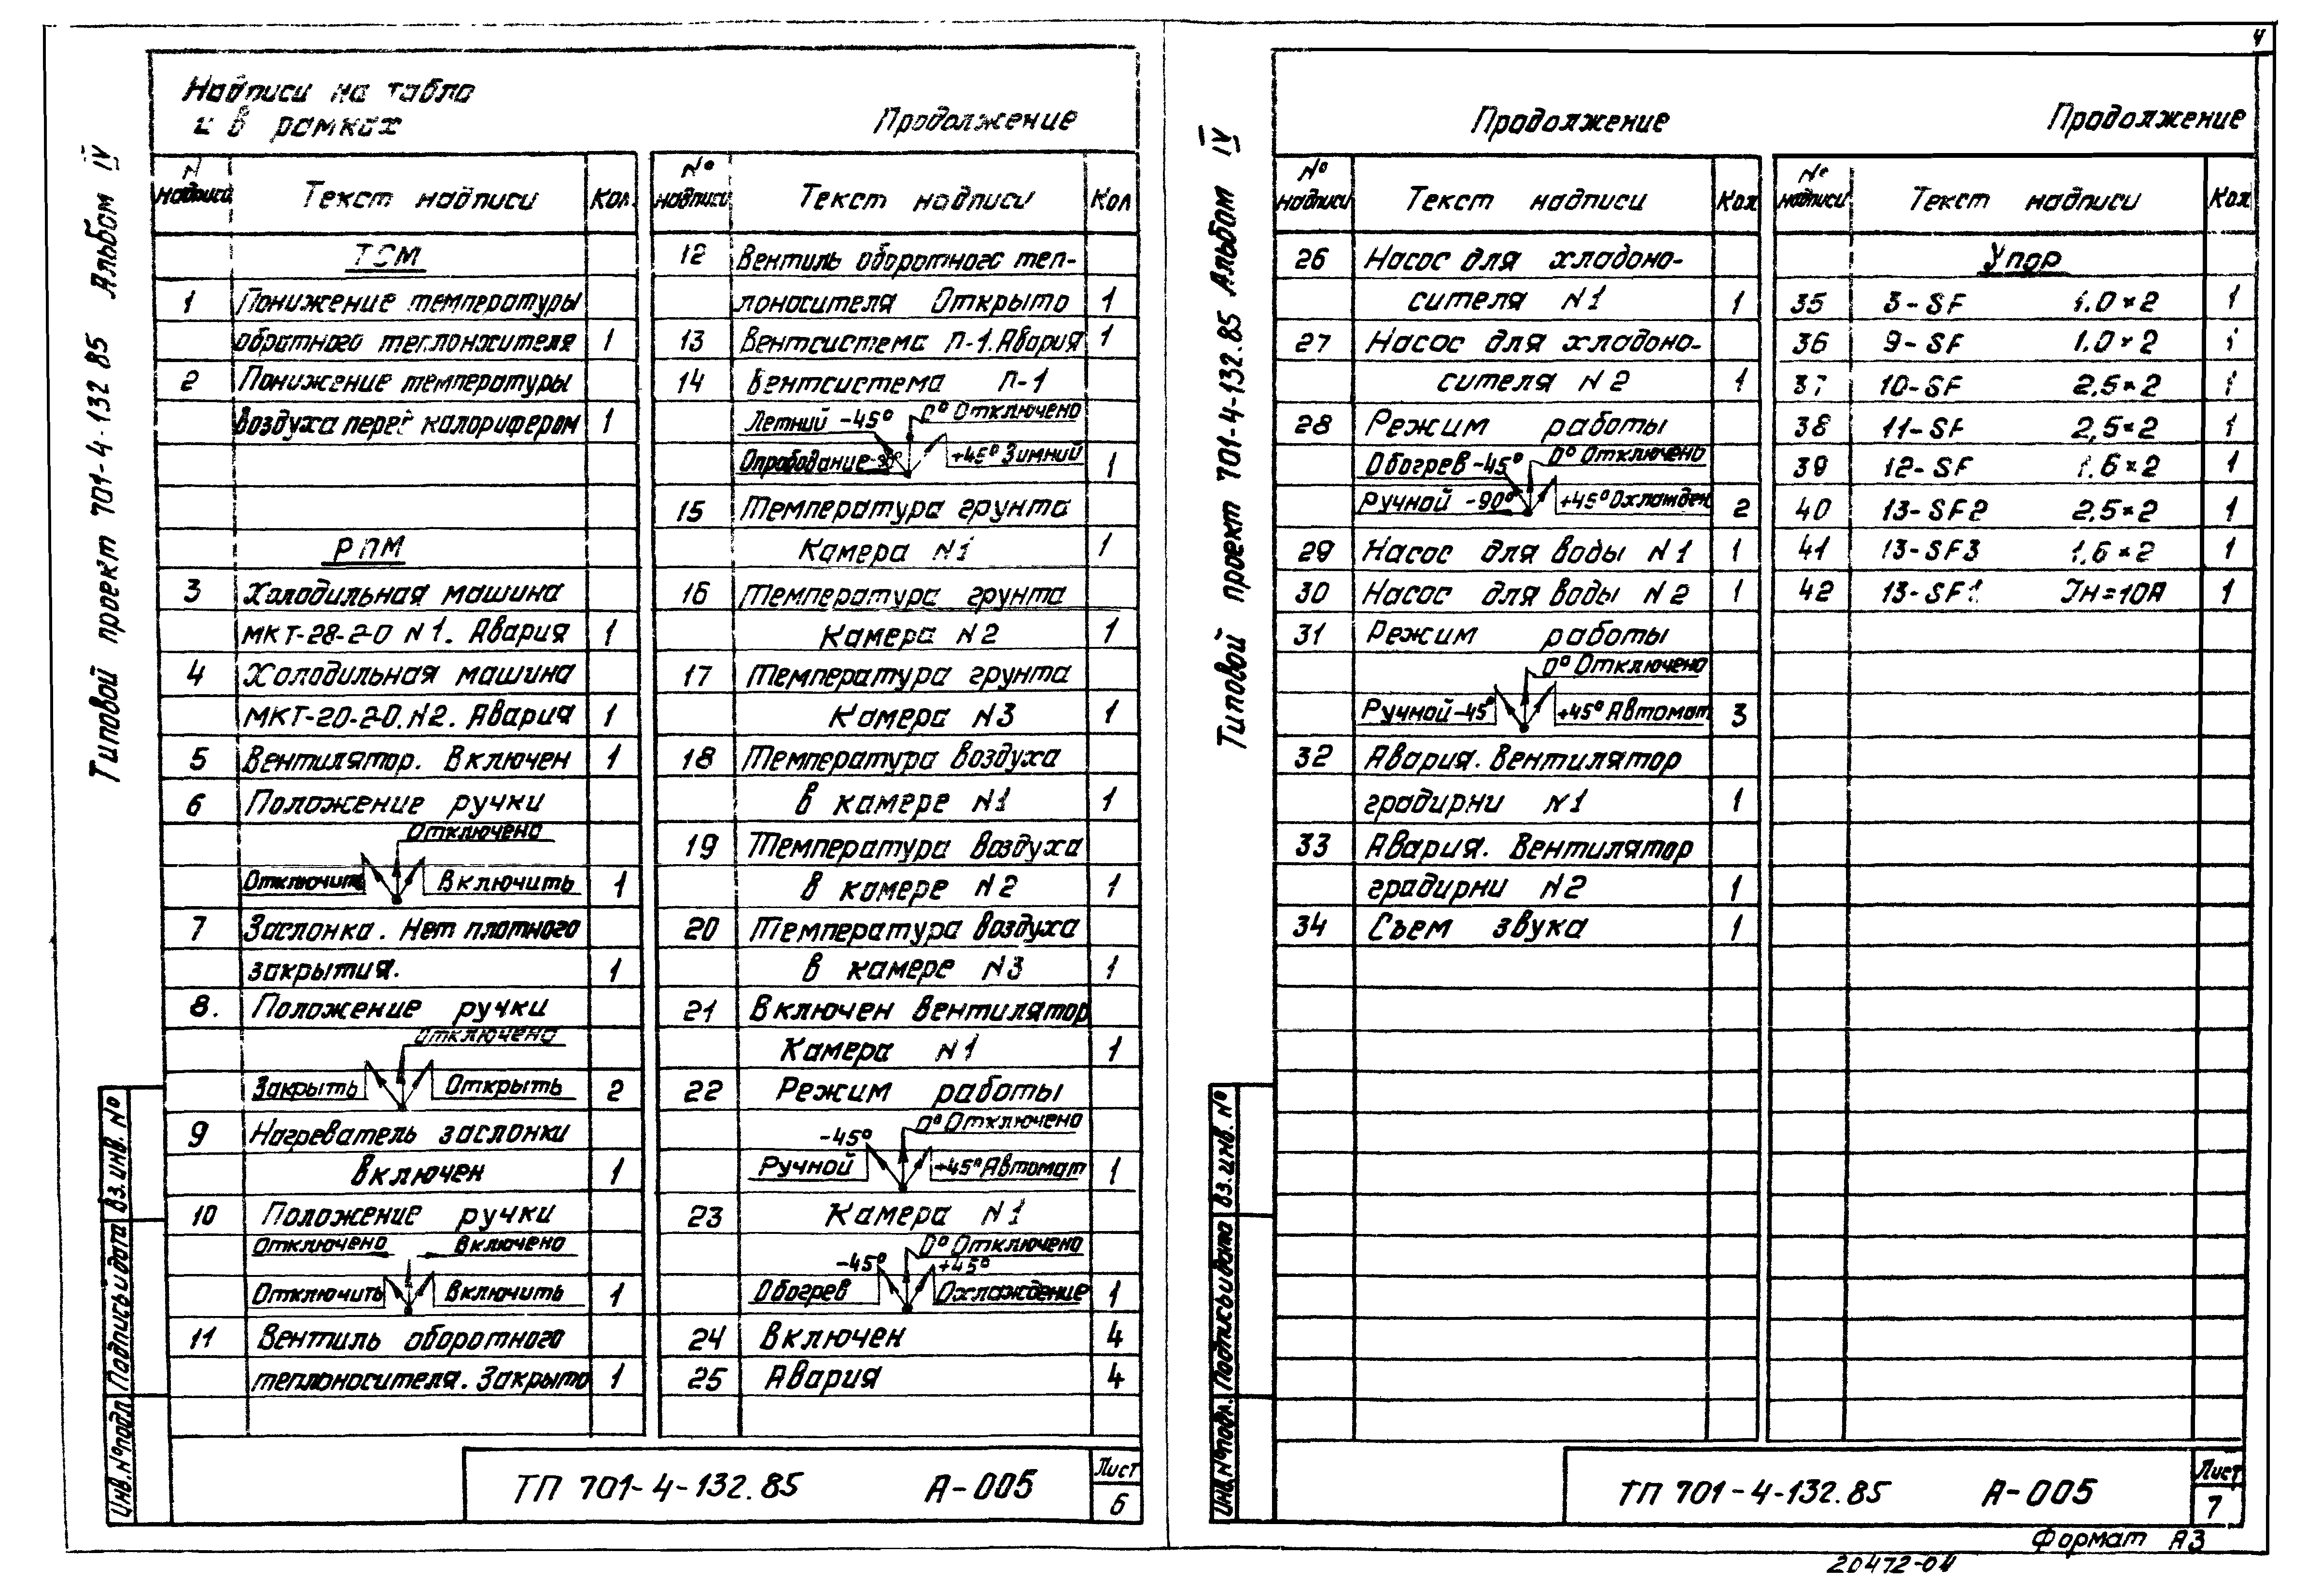 4
Надписи на табло
и в рамках
Продолжение
Типовой проект 701-4-132 85 Альбом IV
N надписи Текст надписи Кол.
ТСМ
1 Понижение температуры
обратного теплоносителя 1
2 Понижение температуры
воздуха перед калорифером 1
РПМ
3 Холодильная машина
МКТ-28-2-0 N1. Авария 1
4 Холодильная машина
МКТ-20-2-0. N2. Авария 1
5 Вентилятор. Включен 1
6 Положение ручки
Отключено
Отключить Включить 1
7 Заслонка. Нет плотного
закрытия. 1
8. Положение ручки
Отключено
Закрыть Открыть 2
9 Нагреватель заслонки
включен 1
10 Положение ручки
Отключено Включено
Отключить Включить 1
11 Вентиль оборотного
теплоносителя. Закрыто 1
№ надписи Текст надписи Кол
12 Вентиль оборотного теп-
лоносителя Открыто 1
13 Вентсистема П-1. Авария 1
14 Вентсистема П-1
Летний -45° 0° Отключено
Опробование +45° Зимний 1
15 Температура грунта
Камера N1 1
16 Температура грунта
Камера N2 1
17 Температура грунта
Камера N3 1
18 Температура воздуха
в камере N1 1
19 Температура воздуха
в камере N2 1
20 Температура воздуха
в камере N3 1
21 Включен вентилятор
Камера N1 1
22 Режим работы
-45° 0° Отключено
Ручной +45° Автомат 1
23 Камера N1
-45° 0° Отключено
+45°
Обогрев Охлаждение 1
24 Включен 4
25 Авария 4
Инв.№подл. Подпись и дата Вз.инв. №
ТП 701-4-132.85 А-005
Лист
6
Продолжение
Продолжение
Типовой проект 701-4-132.85 Альбом IV
№ надписи Текст надписи Кол
26 Насос для хладоно-
сителя N1 1
27 Насос для хладоно-
сителя N2 1
28 Режим работы
Обогрев -45° 0° Отключено
Ручной -90° +45° Охлажден 2
29 Насос для воды N1 1
30 Насос для воды N2 1
31 Режим работы
0° Отключено
Ручной -45° +45° Автомат 3
32 Авария. Вентилятор
градирни N1 1
33 Авария. Вентилятор
градирни N2 1
34 Съем звука 1
№ надписи Текст надписи Кол
Упор
35 3-SF 1.0×2 1
36 9-SF 1.0×2 1
37 10-SF 2.5×2 1
38 11-SF 2,5×2 1
39 12-SF 1.6×2 1
40 13-SF2 2.5×2 1
41 13-SF3 1.6×2 1
42 13-SF1 Jн=10А 1
Инв.№подл. Подпись и дата Вз.инв. №
ТП 701-4-132.85 А-005
Лист
7
Формат А3
20472-04